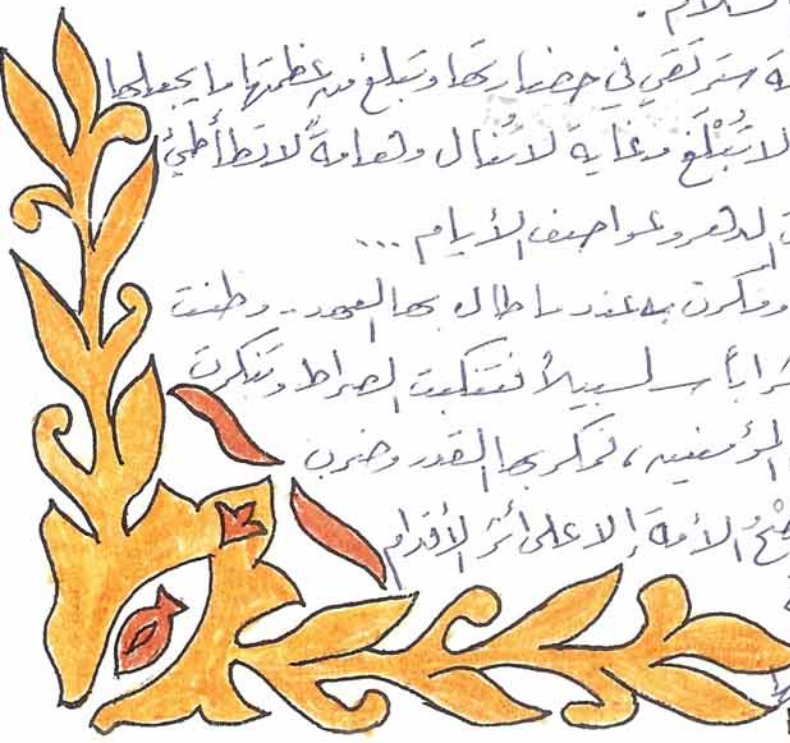 السلام .
ستر تقي في حضارتها وتبلغ من عظمتها ما يجعلها
لا تُبْلَغ وغاية لا تُنال وهامةً لا تطأطئ
الدهر وعواصف الأيام ...
ومكرت به عندما طال بها العهد .. وظنت
سراباً سلسبيلاً فتنكبت الصراط وتنكرت
المؤمنين ، فمكر بها القدر وضرب
الأمة إلا على أثر الأقدام